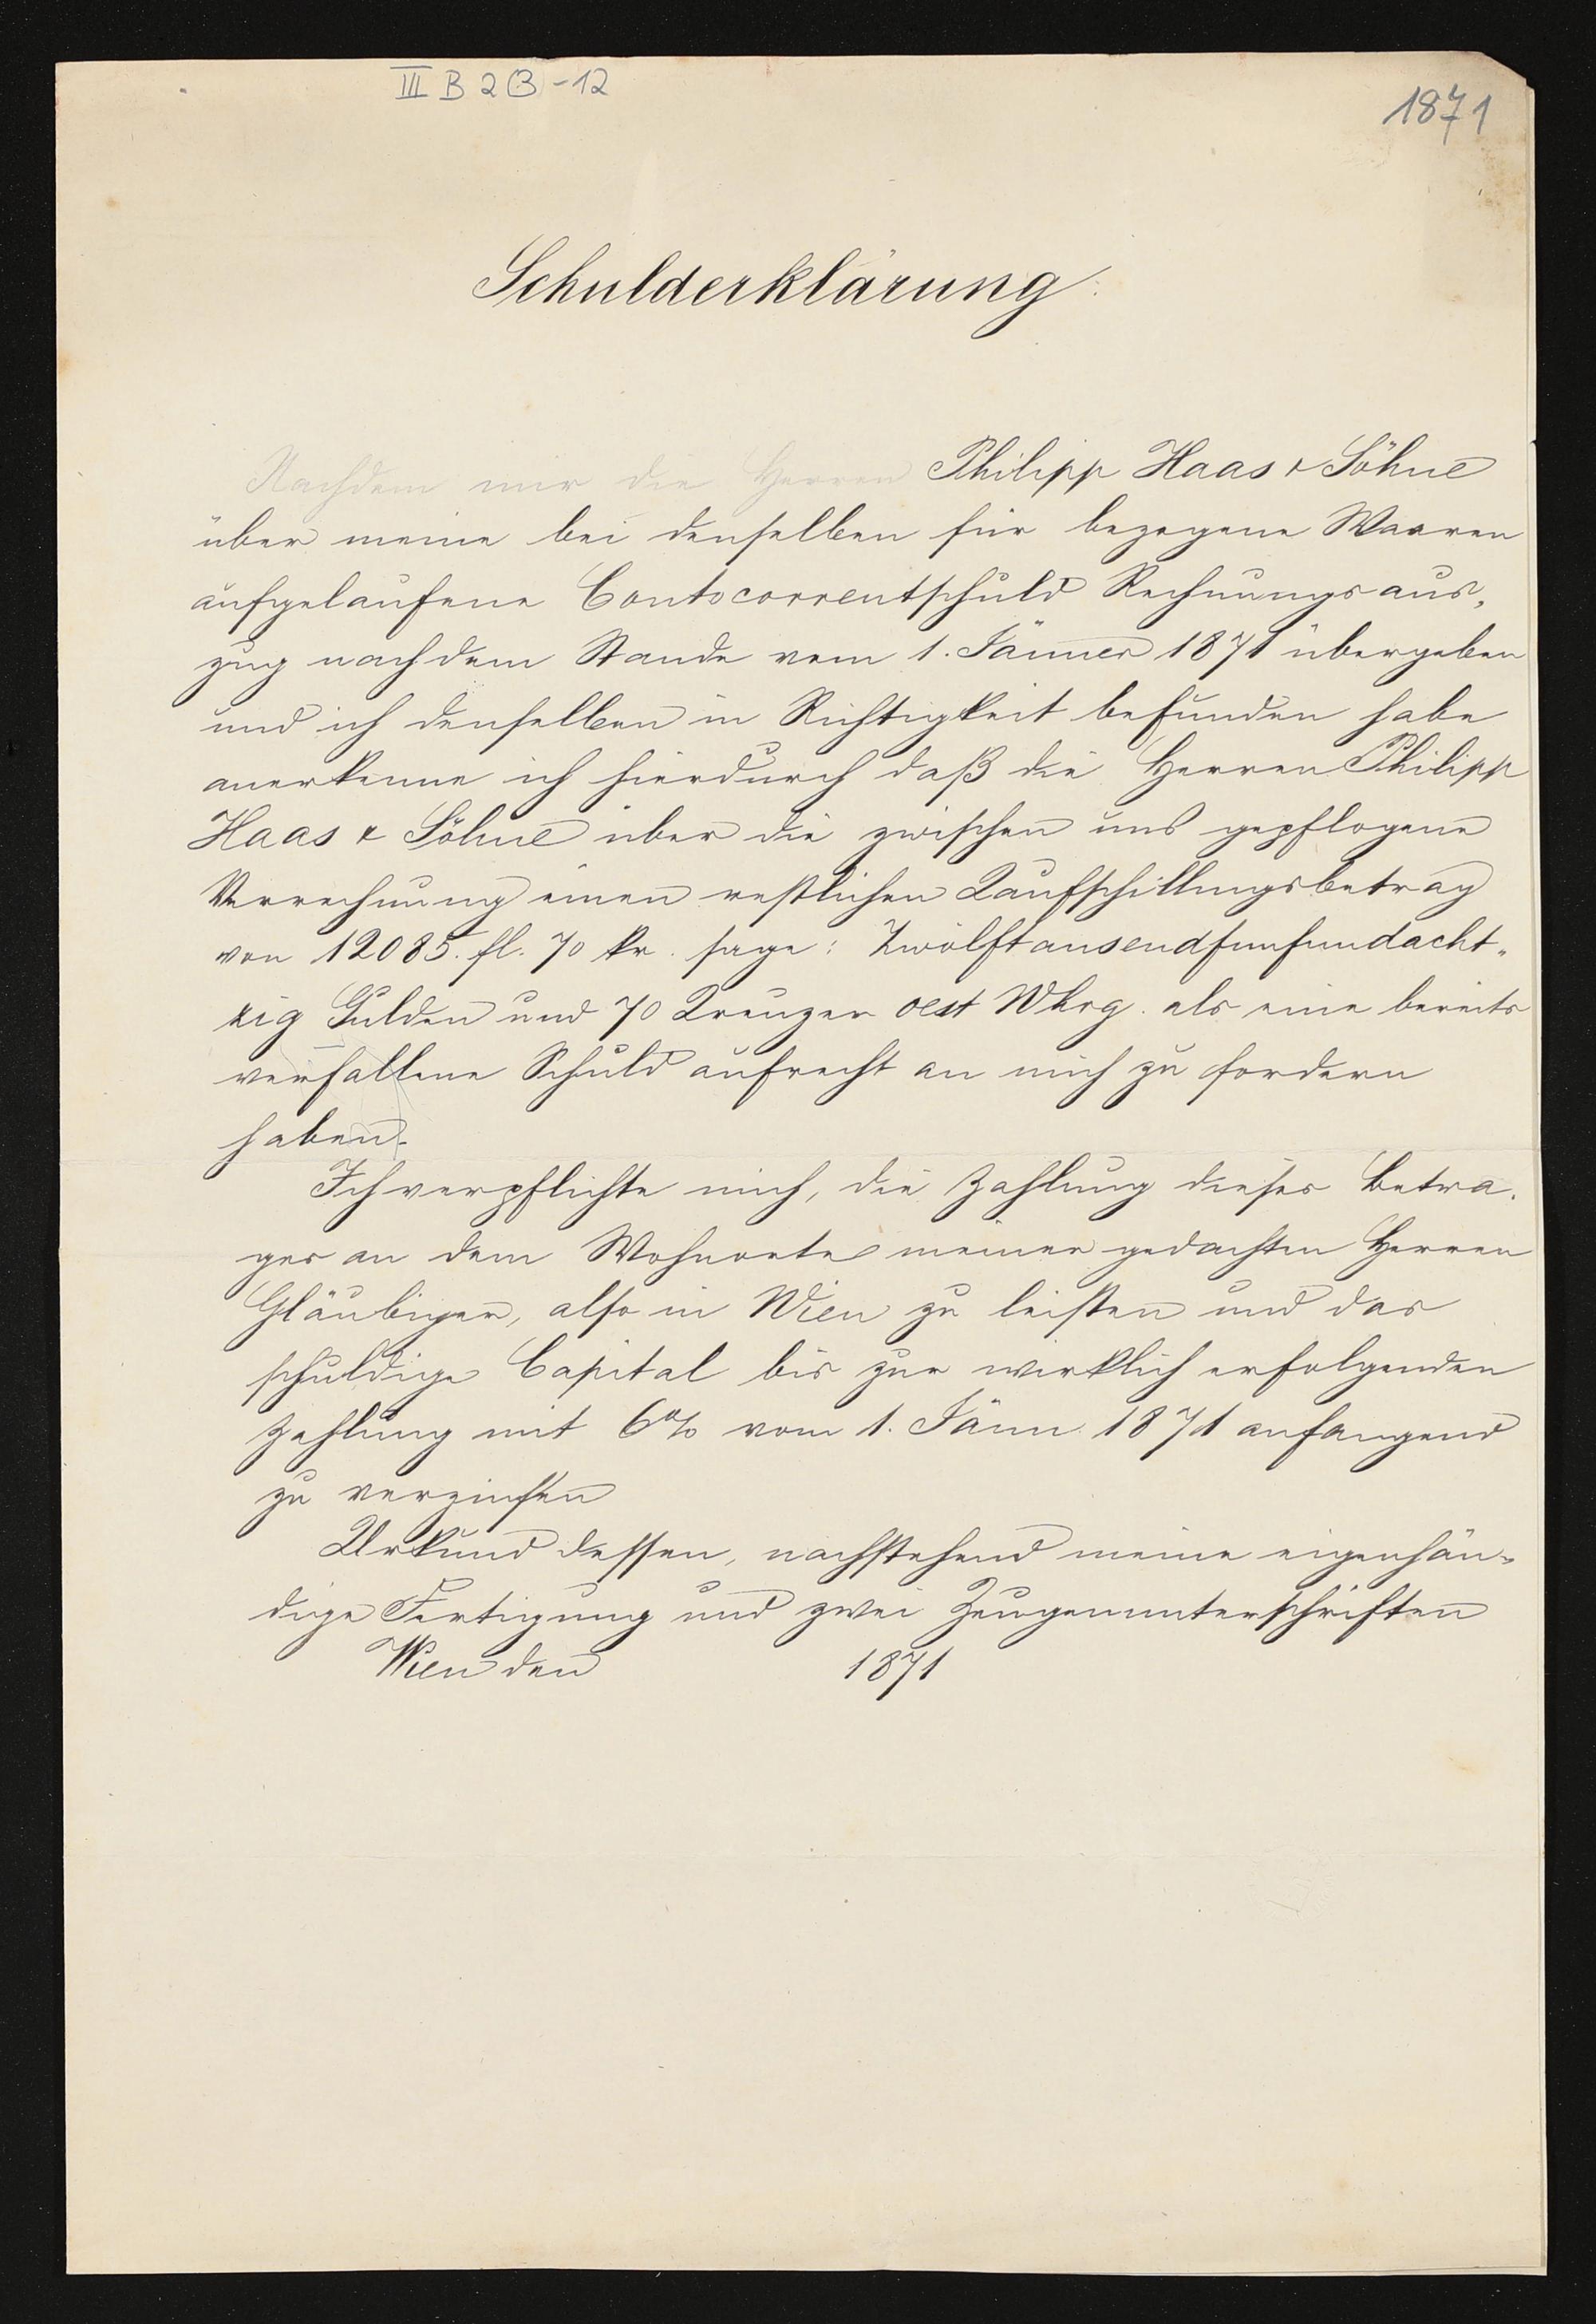 III B 2 B - 12
1871
Schulderklärung:
Nachdem mir die Herren Philipp Haas & Söhne
über meine bei denselben für bezogene Waaren
aufgelaufene Contocorrentschuld Rechnungsaus-
zug nach dem Stande vom 1. Jänner 1871 übergeben
und ich denselben in Richtigkeit befunden habe
anerkenne ich hierdurch daß die Herren Philipp
Haas & Söhne über die zwischen uns gepflogene
Verrechnung einen restlichen Kaufschillingsbetrag
von 12085. fl. 70 kr. sage: Zwölftausendfunfundacht-
zig Gulden und 70 Kreuzer oest Whrg. als eine bereits
verfallene Schuld aufrecht an mich zu fordern
haben.
Ich verpflichte mich, die Zahlung dieses Betra-
ges an dem Wohnorte meiner gedachten Herren
Gläubiger, also in Wien zu leisten und das
schuldige Capital bis zur wirklich erfolgenden
Zahlung mit 6% vom 1. Jänn. 1871 anfangend
zu verzinsen
Urkund dessen, nachstehend meine eigenhän-
dige Fertigung und zwei Zeugenunterschriften
Wien den 1871